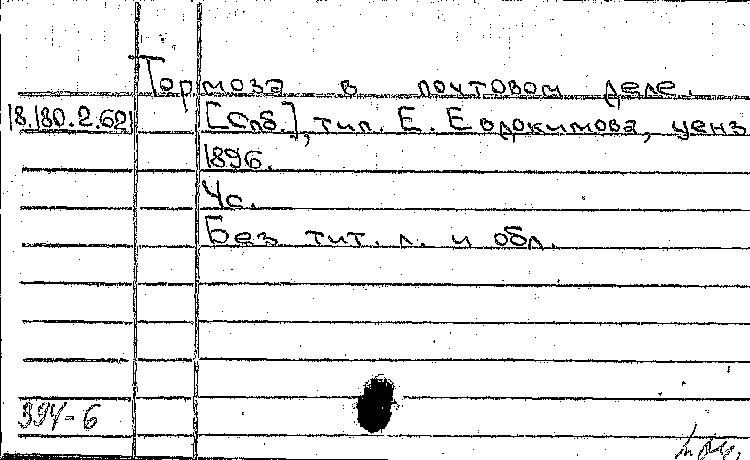 Тормоза в почтовом деле.
18.180.2.621 [Спб.], тип. Е. Евдокимова, ценз
1896.
4с.
Без тит. л. и обл.
394-6